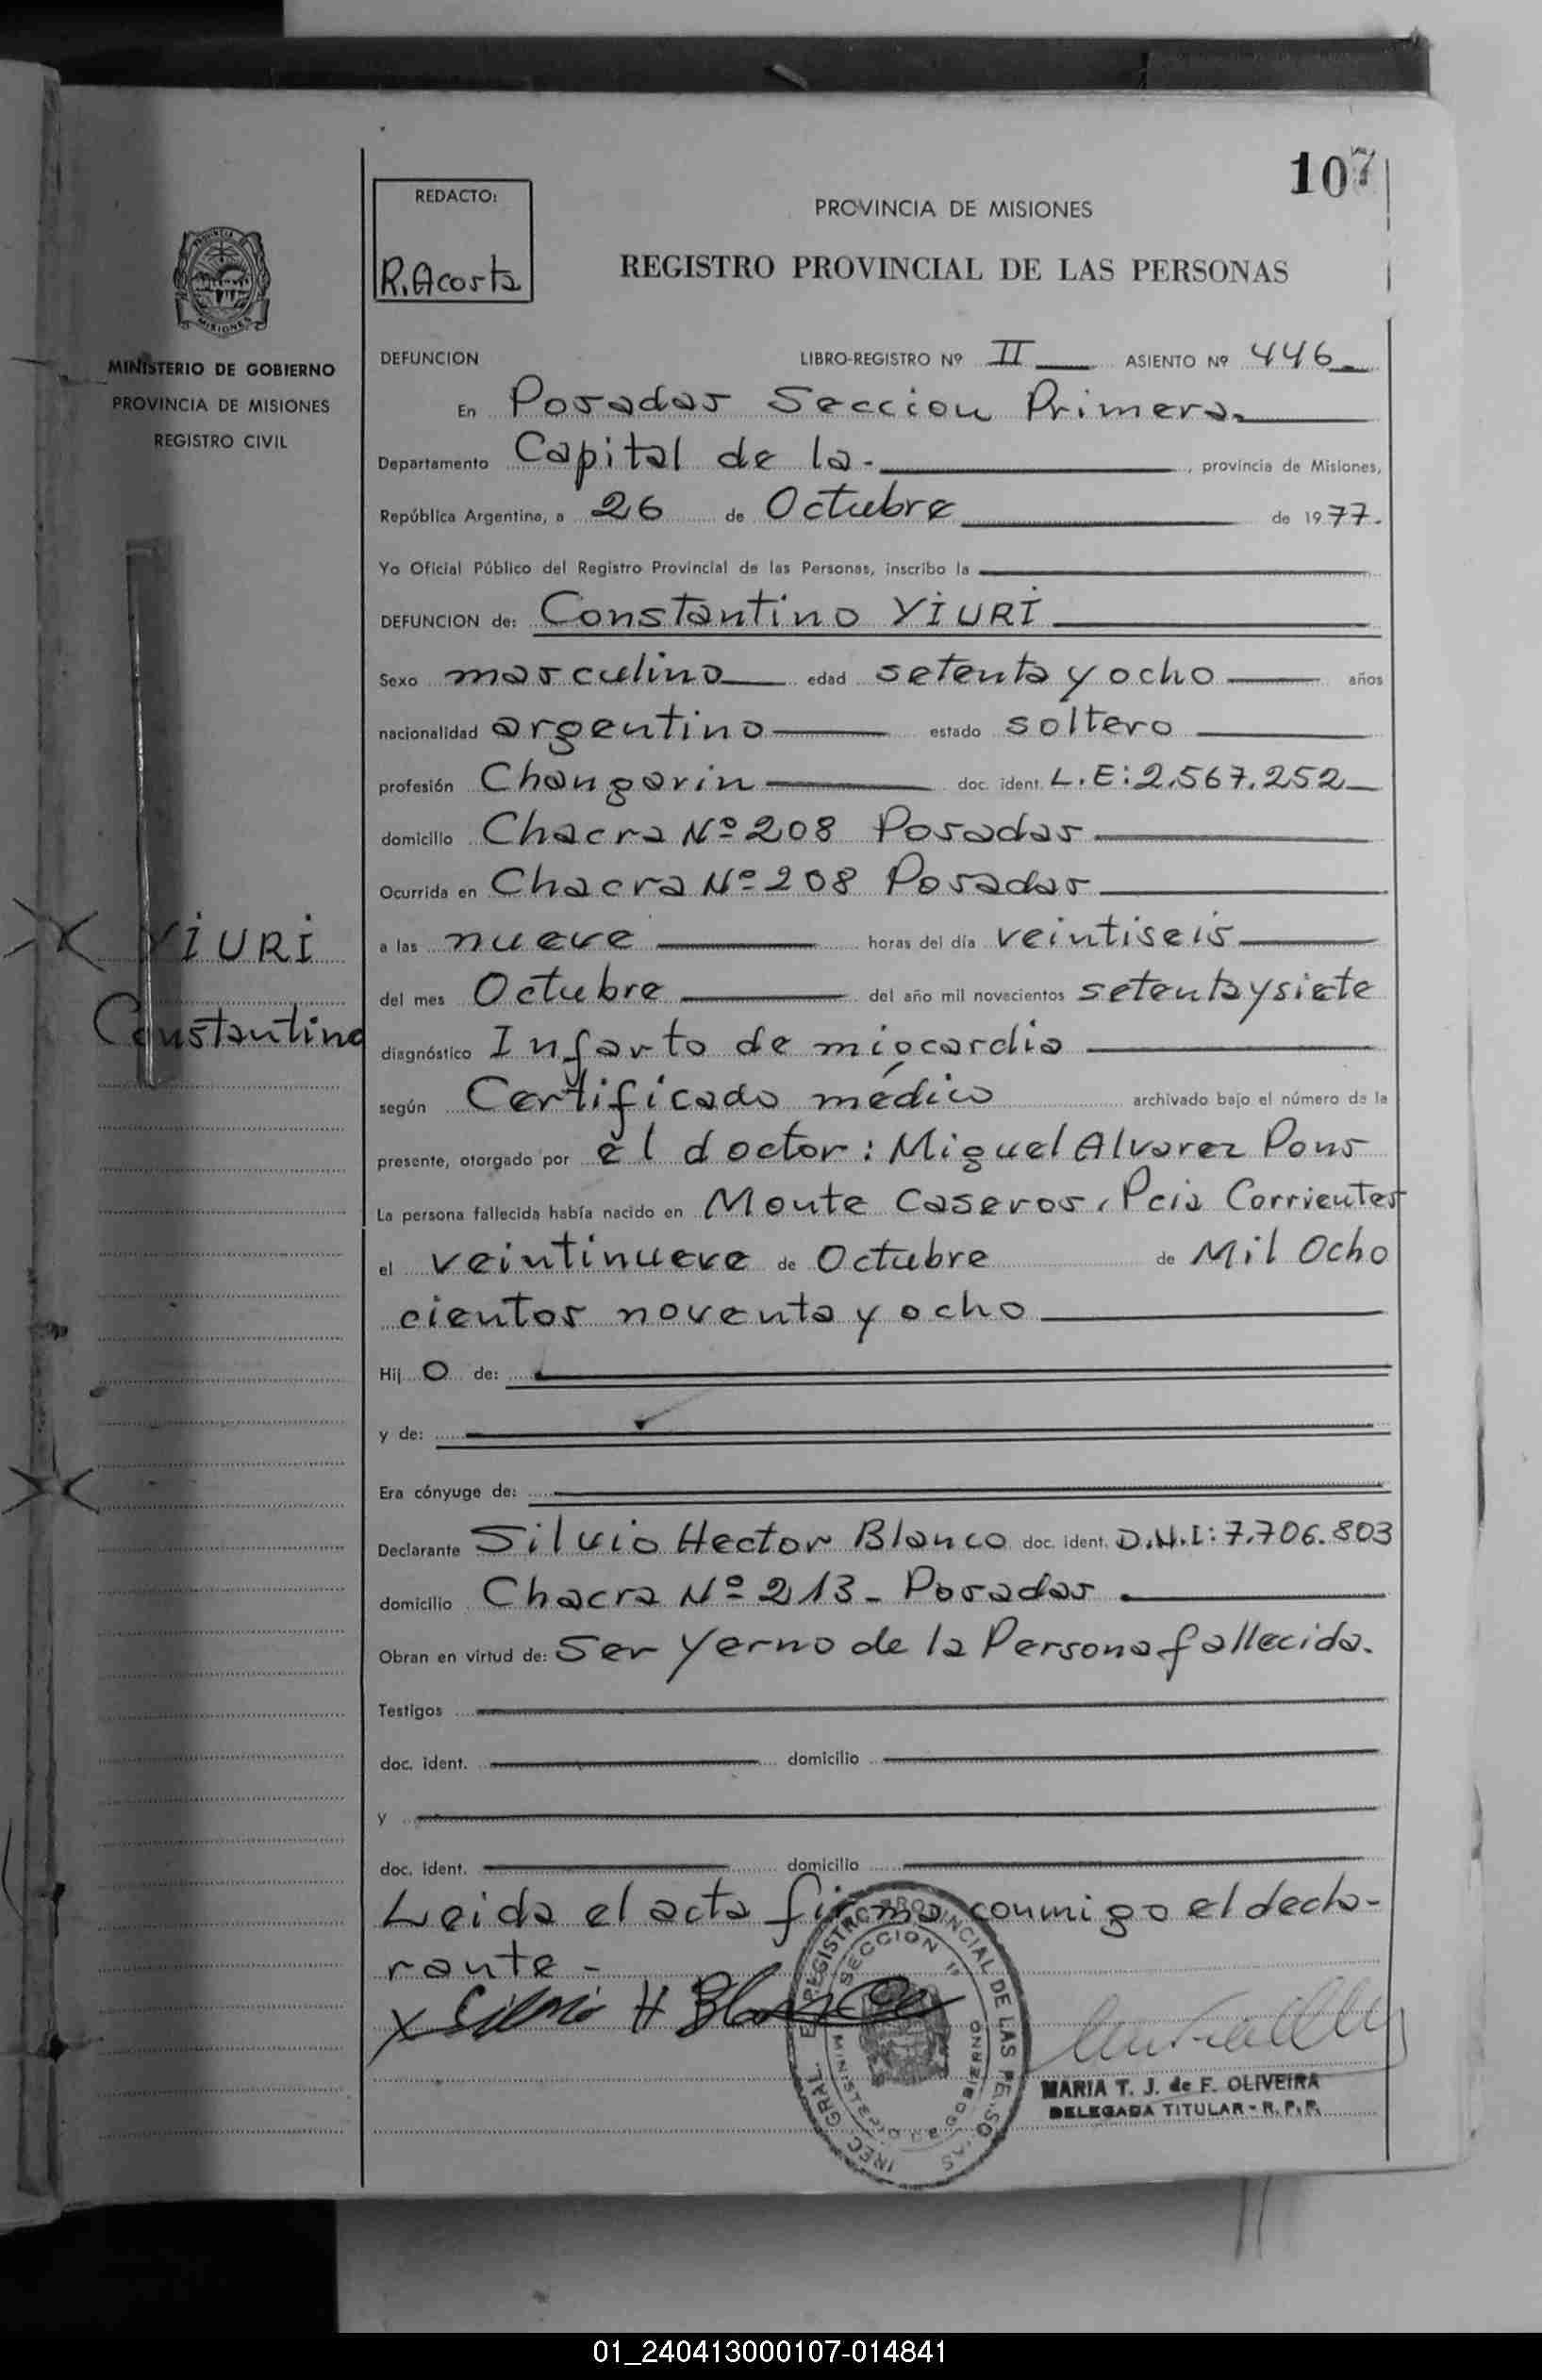 107
REDACTO:
R. Acosta
PROVINCIA DE MISIONES
REGISTRO PROVINCIAL DE LAS PERSONAS
MINISTERIO DE GOBIERNO
PROVINCIA DE MISIONES
REGISTRO CIVIL
DEFUNCION LIBRO-REGISTRO Nº II ASIENTO Nº 446
En Posadas Seccion Primera
Departamento Capital de la.- , provincia de Misiones,
República Argentina, a 26 de Octubre de 1977.
Yo Oficial Público del Registro Provincial de las Personas, inscribo la
DEFUNCION de: Constantino YiURi
Sexo masculino edad setenta y ocho años
nacionalidad argentino estado soltero
profesión Changarin doc. ident. L.E: 2.567.252
domicilio Chacra Nº 208 Posadas
Ocurrida en Chacra Nº 208 Posadas
YiURi
Constantino
a las nueve horas del día veintiseis
del mes Octubre del año mil novecientos setenta y siete
diagnóstico Infarto de miocardio
según Certificado médico archivado bajo el número de la
presente, otorgado por el doctor: Miguel Alvarez Pons
La persona fallecida había nacido en Monte Caseros, Pcia Corrientes
el veintinueve de Octubre de Mil Ocho
cientos noventa y ocho
Hijo de:
y de:
Era cónyuge de:
Declarante Silvio Hector Blanco doc. ident. D.N.I: 7.706.803
domicilio Chacra Nº 213 - Posadas
Obran en virtud de: Ser Yerno de la Persona fallecida.
Testigos
doc. ident. domicilio
y
doc. ident. domicilio
Leida el acta firma conmigo el decla-
rante -
x Silvio H Blanco
REGISTRO PROVINCIAL DE LAS PERSONAS
SECCION 1ª
MINISTERIO DE GOBIERNO
MARIA T. J. de F. OLIVEIRA
DELEGADA TITULAR - R. P. P.
01_240413000107-014841